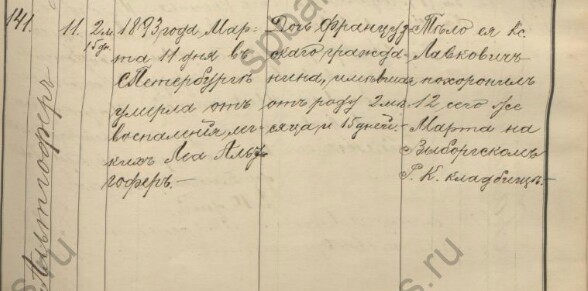 141.
Альтгоферъ
11.
2 м.
15 дн.
1893 года Мар-
та 11 дня въ
С.Петербургѣ
умерла отъ
воспаленія лег-
кихъ Леа Альт-
гоферъ.—
Дочь француз-
скаго гражда-
нина, имѣвшая
отъ роду 2 мѣ-
сяца и 15 дней.—
Тѣло ея Кс.
Лавковичъ
похоронилъ
12 сего же
Марта на
Выборгскомъ
Р. К. кладбищѣ.—